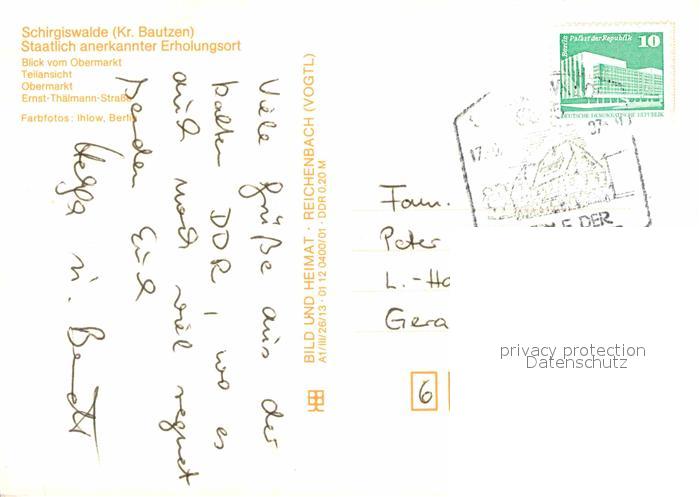 Schirgiswalde (Kr. Bautzen)
Staatlich anerkannter Erholungsort
Blick vom Obermarkt
Teilansicht
Obermarkt
Ernst-Thälmann-Straße
Farbfotos: Ihlow, Berlin
Viele Grüße aus der
kalten DDR, wo es
auch noch viel regnet
senden Euch
u.
BILD UND HEIMAT · REICHENBACH (VOGTL)
A1/III/26/13 · 01 12 0400/01 · DDR 0,20 M
Berlin Palast der Republik
10
DEUTSCHE DEMOKRATISCHE REPUBLIK
DER
Fam.
Peter
L.-Ho
Gera
6
privacy protection
Datenschutz